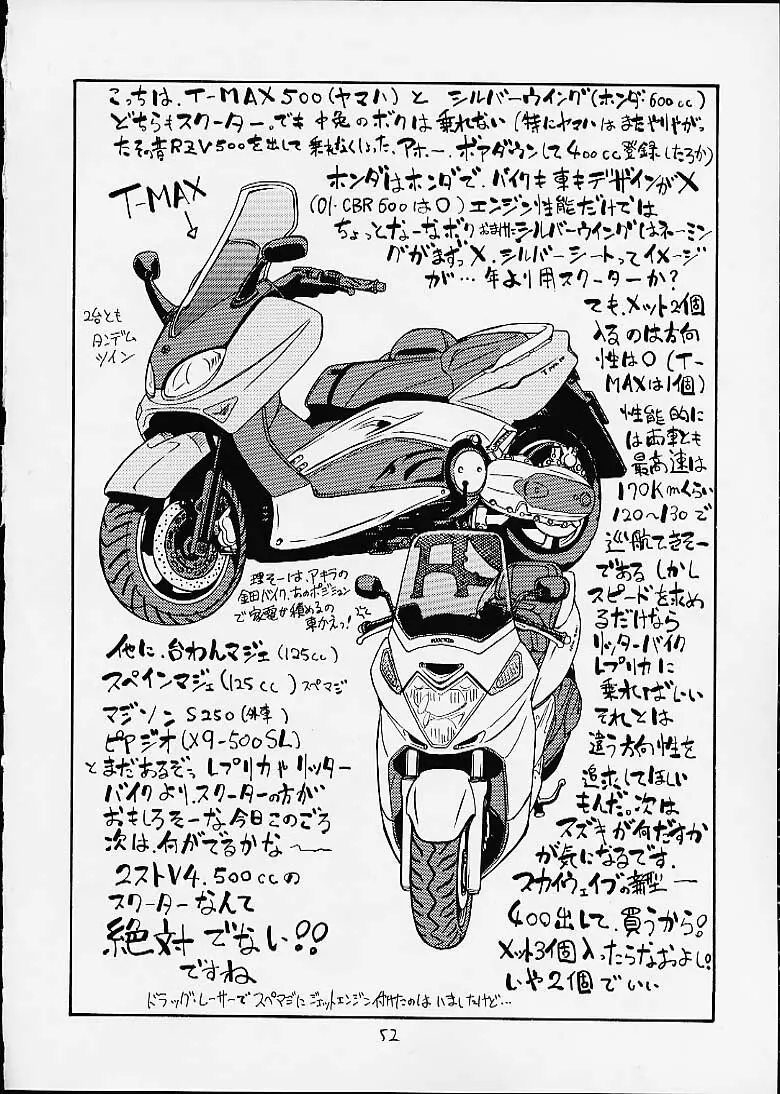 こっちは、T-MAX500(ヤマハ)と シルバーウイング(ホンダ・600cc)
どちらもスクーター。でも中免のボクは乗れない(特にヤマハはまたやりやがっ
たその昔RZV500を出して乗れなくしった、アホー、ボアダウンして400cc登録したろか)
ホンダはホンダで、バイクも車もデザインが×
(01・CBR600は○)エンジン性能だけでは
ちょっとなーなボク おまけにシルバーウイングはネーミン
グがまずっ×、シルバーシートってイメージ
が…年より用スクーターか?
T-MAX
2台とも
タンデム
ツイン
でも、メット2個
入るのは方向
性は○(T-
MAXは1個)
性能的に
は両車とも
最高速は
170Kmくらい
120〜130で
巡航できそー
である しかし
スピードを求め
るだけなら
リッターバイク
レプリカに
乗ればいい
それとは
違う方向性を
追求してほしい
もんだ。次は
スズキが何だすか
が気になるです.
スカイウェイブの新型ー
400出して、買うから!
メット3個入ったらなおよし!
いや2個でいい
理そーは、アキラの
金田バイク、あのポジション
で家電が積めるの
車かえっ!
他に、台わんマジェ(125cc)
スペインマジェ(125cc)スペマジ
マジソンS250(外車)
ピヤジオ(X9-500SL)
とまだあるぞっ レプリカやリッター
バイクより、スクーターの方が
おもしろそーな今日このごろ
次は、何がでるかな〜
2ストV4.500ccの
スクーターなんて
絶対でない!!
ですね
ドラッグ・レーサーでスペマジにジェットエンジン付けたのはいましたけど…
52